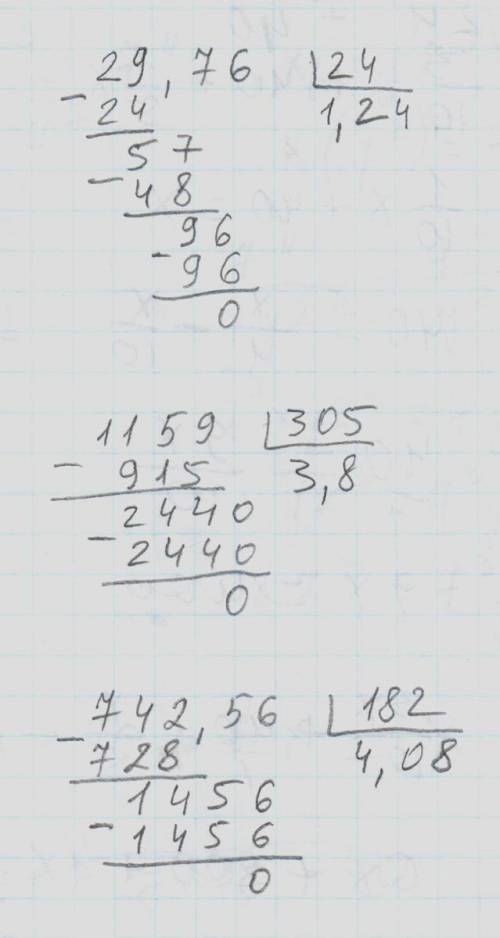 29,76 24
- 24 1,24
57
- 48
96
- 96
0
1159 305
- 915 3,8
2440
- 2440
0
742,56 182
- 728 4,08
1456
- 1456
0